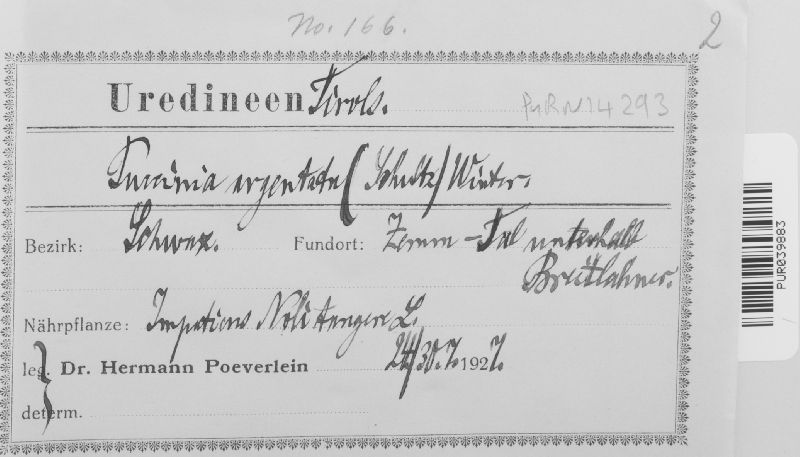 No. 166.
2
Uredineen Tirols.
PURN14293
Puccinia argentata (Schultz) Winter.
Bezirk: Schwaz. Fundort: Zemm-Tal unterhalb
Breitlahner.
Nährpflanze: Impatiens Noli tangere L.
leg. Dr. Hermann Poeverlein 24/30.7.1927.
determ.
PUR039883